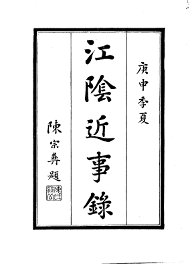 庚申季夏
江陰近事錄
陳宗彝題